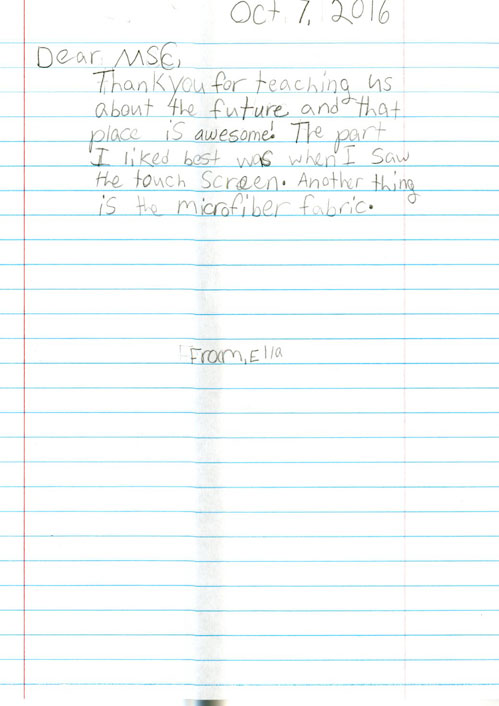 Oct. 7, 2016
Dear MSC,
Thank you for teaching us
about the future and that
place is awesome! The part
I liked best was when I saw
the touch screen. Another thing
is the microfiber fabric.
From, Ella